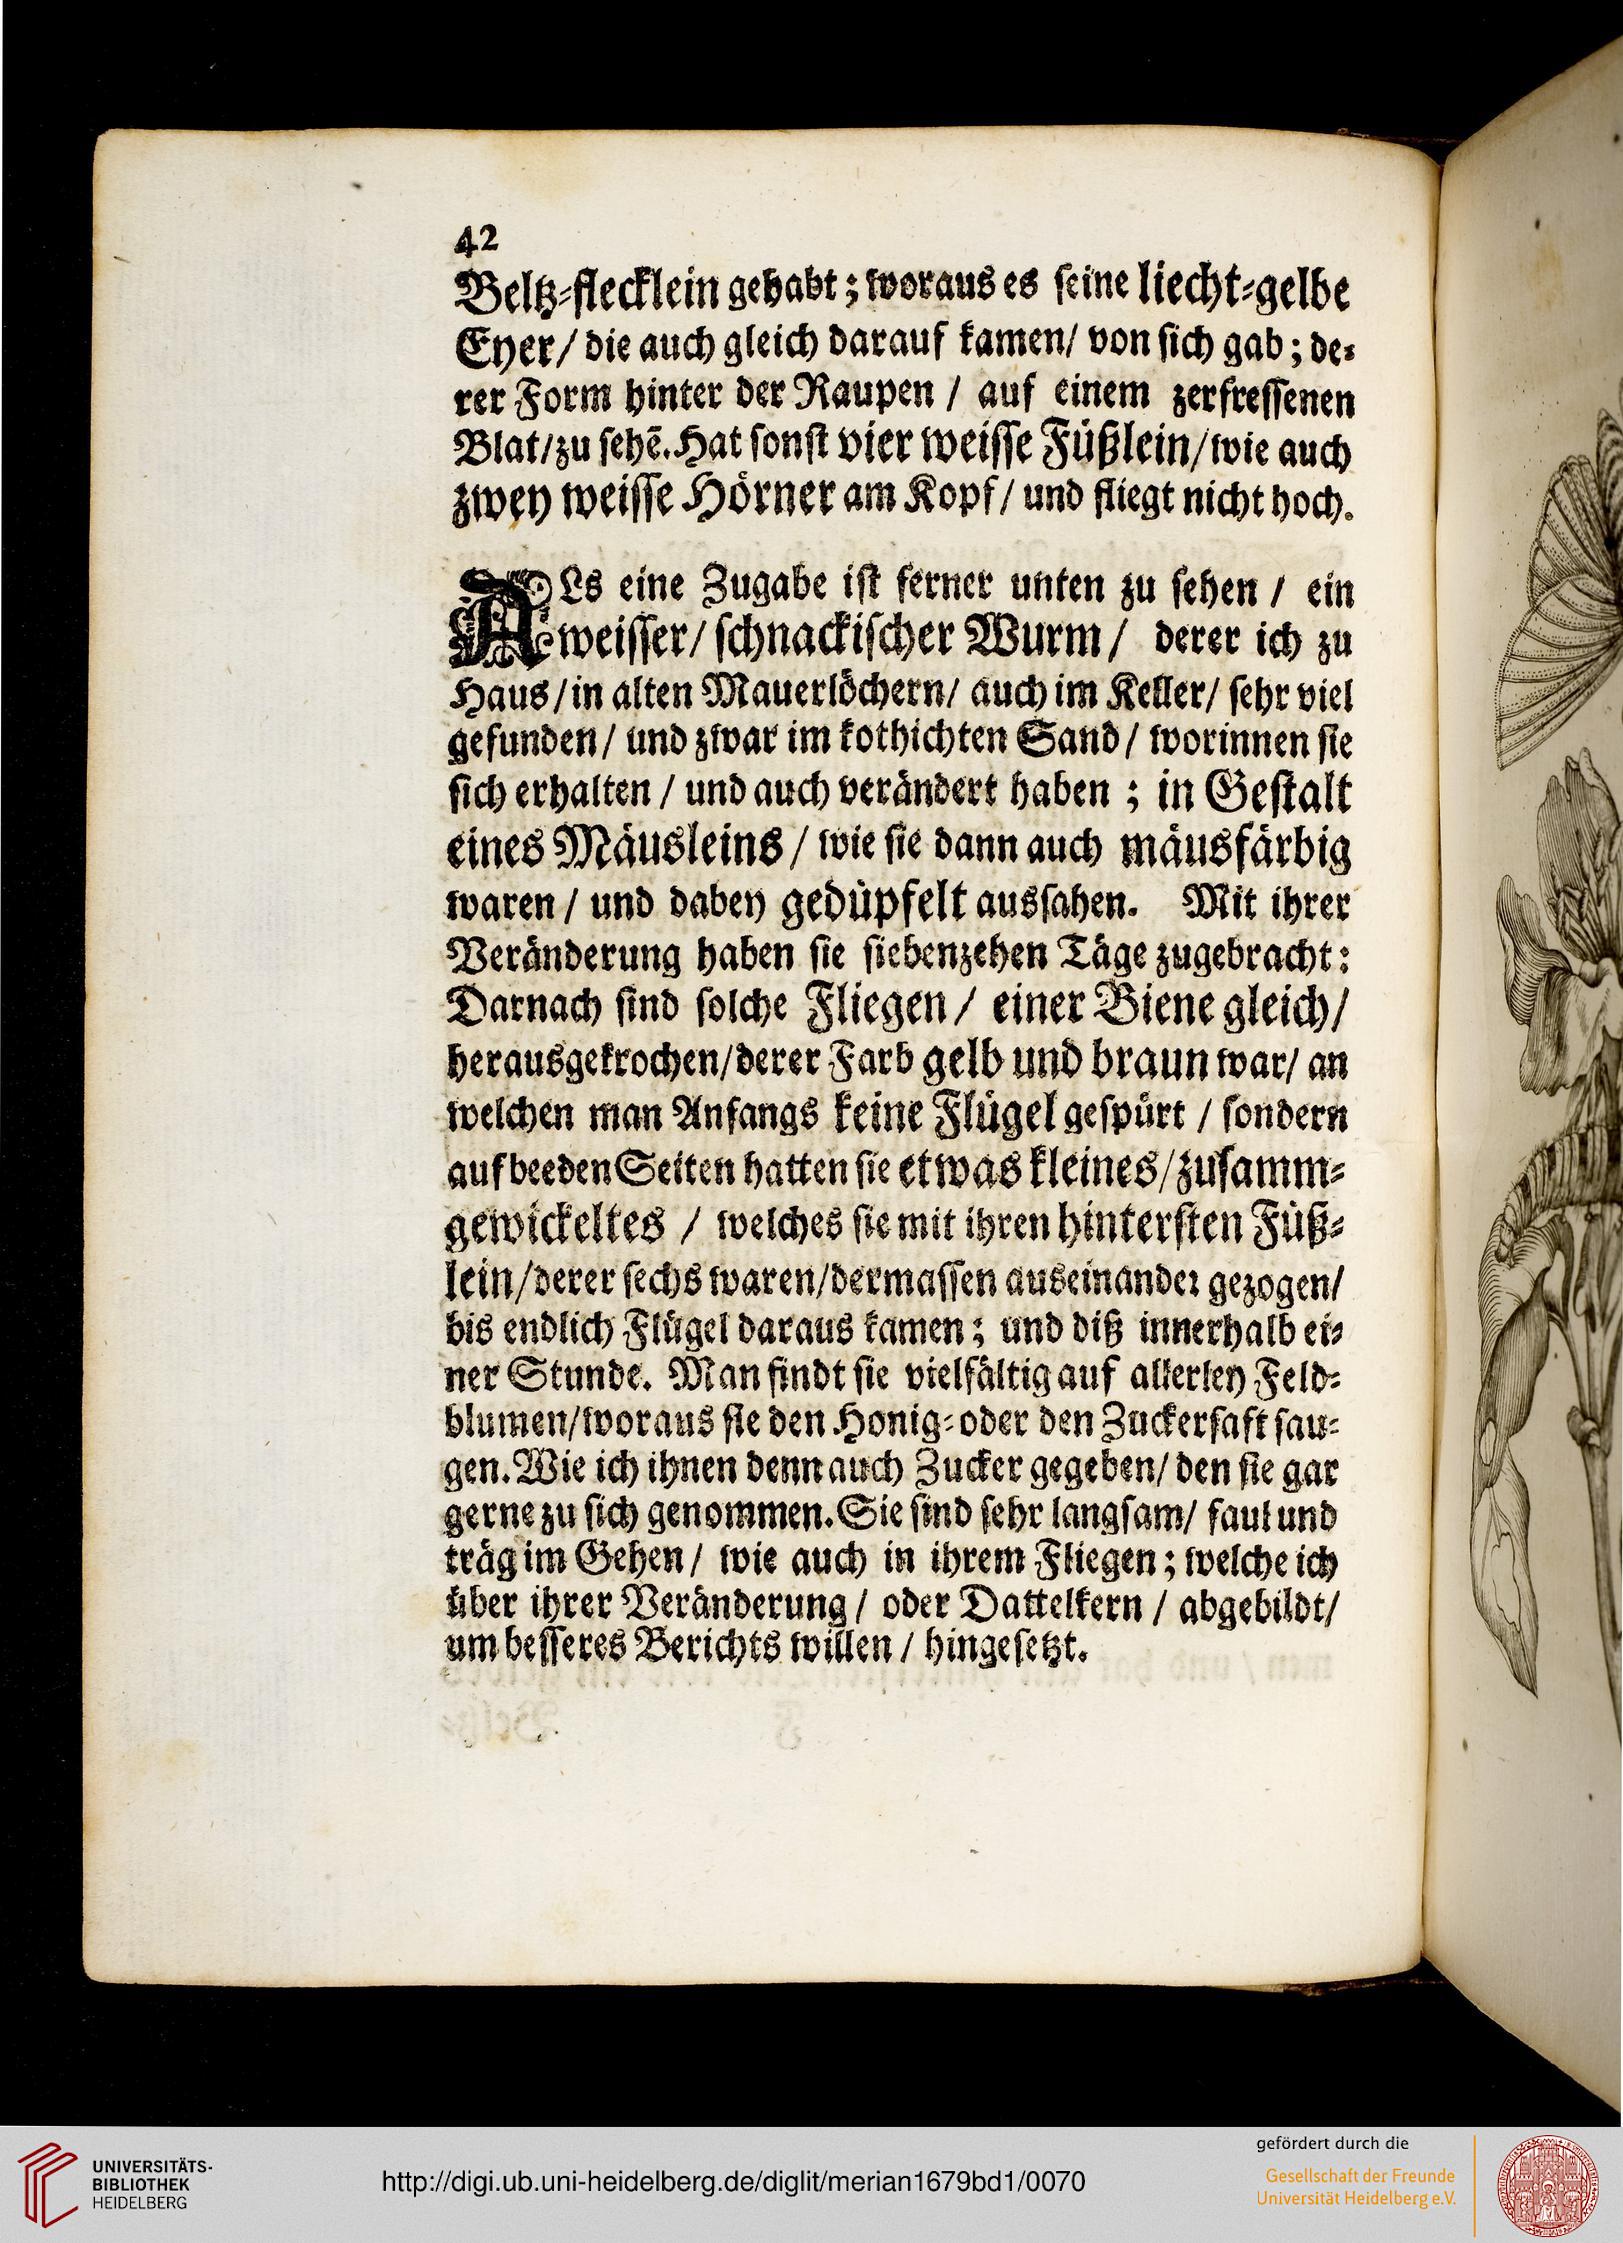 42
Beltz-flecklein gehabt; woraus es ſeine liecht-gelbe
Eyer/ die auch gleich darauf kamen/ von ſich gab; de-
rer Form hinter der Raupen / auf einem zerfreſſenen
Blat/zu ſehē. Hat ſonſt vier weiſſe Füßlein/wie auch
zwey weiſſe Hörner am Kopf/ und fliegt nicht hoch.
ALs eine Zugabe iſt ferner unten zu ſehen / ein
weiſſer/ ſchnackiſcher Wurm/ derer ich zu
Haus/in alten Mauerlöchern/ auch im Keller/ ſehr viel
gefunden/ und zwar im kothichten Sand/ worinnen ſie
ſich erhalten / und auch verändert haben ; in Geſtalt
eines Mäusleins / wie ſie dann auch mäusfärbig
waren / und dabey gedüpfelt ausſahen. Mit ihrer
Veränderung haben ſie ſiebenzehen Täge zugebracht:
Darnach ſind ſolche Fliegen / einer Biene gleich/
herausgekrochen/derer Farb gelb und braun war/ an
welchen man Anfangs keine Flügel geſpürt / ſondern
auf beeden Seiten hatten ſie etwas kleines/zuſamm-
gewickeltes / welches ſie mit ihren hinterſten Füß-
lein/derer ſechs waren/dermaſſen auseinander gezogen/
bis endlich Flügel daraus kamen; und diß innerhalb ei-
ner Stunde. Man findt ſie vielfältig auf allerley Feld-
blumen/woraus ſie den Honig-oder den Zuckerſaft ſau-
gen. Wie ich ihnen denn auch Zucker gegeben/ den ſie gar
gerne zu ſich genommen. Sie ſind ſehr langſam/ faul und
träg im Gehen/ wie auch in ihrem Fliegen; welche ich
über ihrer Veränderung / oder Dattelkern / abgebildt/
um beſſeres Berichts willen / hingeſetzt.
UNIVERSITÄTS-
BIBLIOTHEK
HEIDELBERG
http://digi.ub.uni-heidelberg.de/diglit/merian1679bd1/0070
gefördert durch die
Gesellschaft der Freunde
Universität Heidelberg e.V.